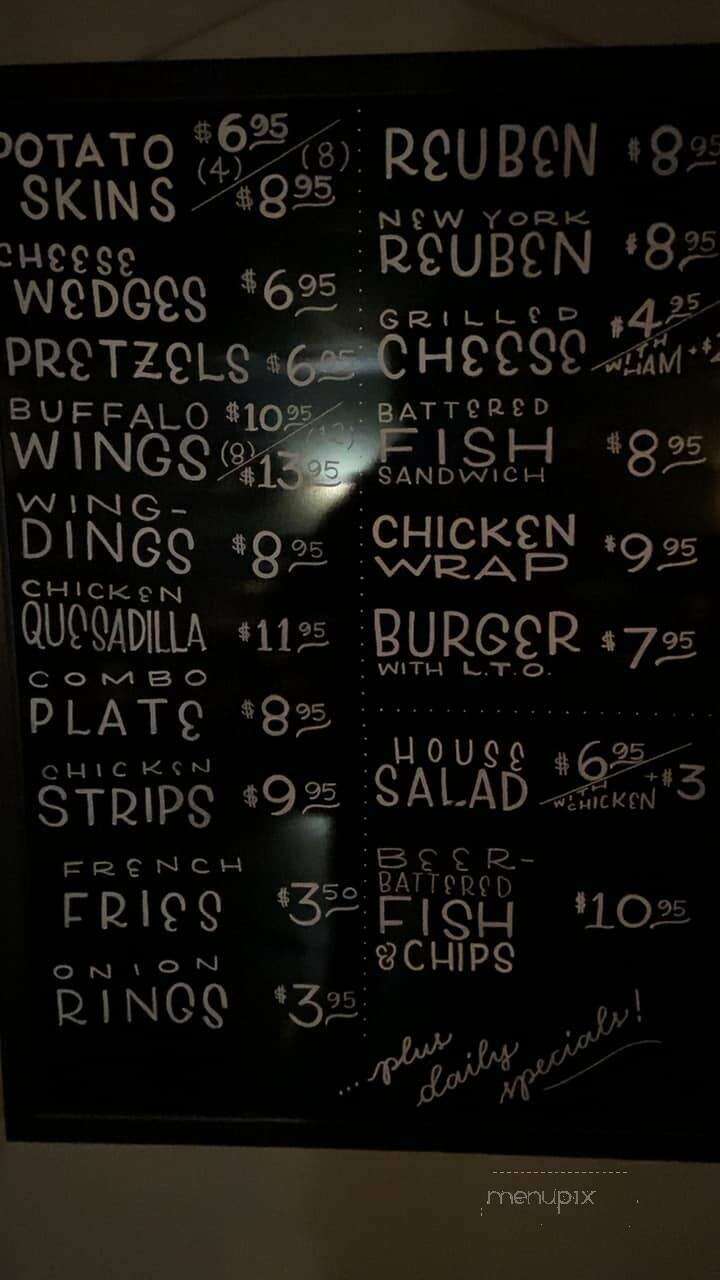 POTATO $6.95
(4) (8)
SKINS $8.95
CHEESE
WEDGES $6.95
PRETZELS $6.95
BUFFALO $10.95
WINGS (8)
$13.95
WING-
DINGS $8.95
CHICKEN
QUESADILLA $11.95
COMBO
PLATE $8.95
CHICKEN
STRIPS $9.95
FRENCH
FRIES $3.50
ONION
RINGS $3.95
REUBEN $8.95
NEW YORK
REUBEN $8.95
GRILLED $4.95
CHEESE WITH
HAM +$
BATTERED
FISH $8.95
SANDWICH
CHICKEN
WRAP $9.95
BURGER $7.95
WITH L.T.O.
HOUSE $6.95
SALAD WITH CHICKEN +$3
BEER-
BATTERED
FISH $10.95
& CHIPS
... plus
daily
specials!
menupix